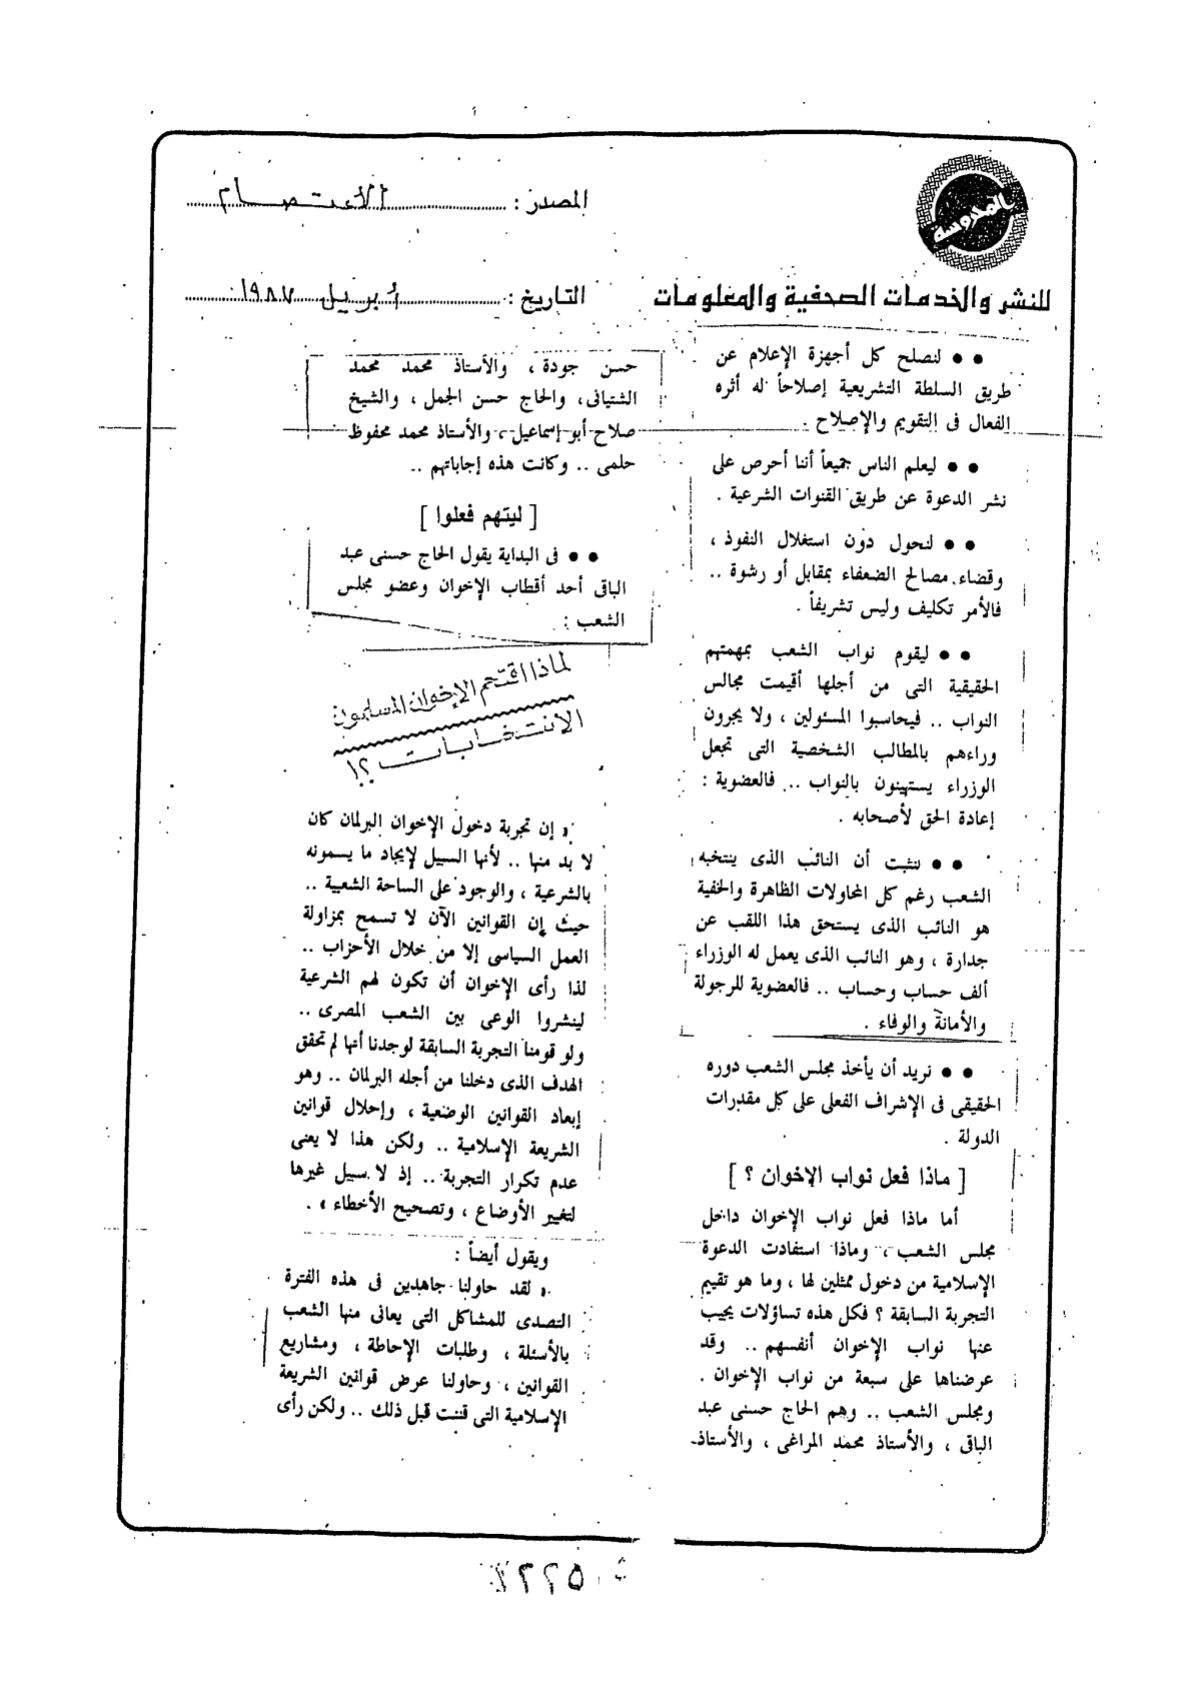 المصدر : الاعتصام
للنشر والخدمات الصحفية والمعلومات
التاريخ : أبريل ١٩٨٧
●● لنصلح كل أجهزة الإعلام عن
طريق السلطة التشريعية إصلاحاً له أثره
الفعال فى التقويم والإصلاح .
●● ليعلم الناس جميعاً أننا أحرص على
نشر الدعوة عن طريق القنوات الشرعية .
●● لنحول دون استغلال النفوذ ،
وقضاء مصالح الضعفاء بمقابل أو رشوة ..
فالأمر تكليف وليس تشريفاً .
●● ليقوم نواب الشعب بمهمتهم
الحقيقية التى من أجلها أقيمت مجالس
النواب .. فيحاسبوا المسئولين ، ولا يجرون
وراءهم بالمطالب الشخصية التى تجعل
الوزراء يستهينون بالنواب .. فالعضوية :
إعادة الحق لأصحابه .
●● لنثبت أن النائب الذى ينتخبه
الشعب رغم كل المحاولات الظاهرة والخفية
هو النائب الذى يستحق هذا اللقب عن
جدارة ، وهو النائب الذى يعمل له الوزراء
ألف حساب وحساب .. فالعضوية للرجولة
والأمانة والوفاء .
●● نريد أن يأخذ مجلس الشعب دوره
الحقيقى فى الإشراف الفعلى على كل مقدرات
الدولة .
[ ماذا فعل نواب الإخوان ؟ ]
أما ماذا فعل نواب الإخوان داخل
مجلس الشعب ، وماذا استفادت الدعوة
الإسلامية من دخول ممثلين لها ، وما هو تقييم
التجربة السابقة ؟ فكل هذه تساؤلات يجيب
عنها نواب الإخوان أنفسهم .. وقد
عرضناها على سبعة من نواب الإخوان .
ومجلس الشعب .. وهم الحاج حسنى عبد
الباقى ، والأستاذ محمد المراغى ، والأستاذ
حسن جودة ، والأستاذ محمد محمد
الشتيانى ، والحاج حسن الجمل ، والشيخ
صلاح أبو إسماعيل ، والأستاذ محمد محفوظ
حلمى .. وكانت هذه إجاباتهم ..
[ ليتهم فعلوا ]
●● فى البداية يقول الحاج حسنى عبد
الباقى أحد أقطاب الإخوان وعضو مجلس
الشعب :
لماذا اقتحم الإخوان المسلمون
الانتخابات ؟!
« إن تجربة دخول الإخوان البرلمان كان
لا بد منها .. لأنها السبيل لإيجاد ما يسمونه
بالشرعية ، والوجود على الساحة الشعبية ..
حيث إن القوانين الآن لا تسمح بمزاولة
العمل السياسى إلا من خلال الأحزاب ..
لذا رأى الإخوان أن تكون لهم الشرعية
لينشروا الوعى بين الشعب المصرى ..
ولو قومنا التجربة السابقة لوجدنا أنها لم تحقق
الهدف الذى دخلنا من أجله البرلمان .. وهو
إبعاد القوانين الوضعية ، وإحلال قوانين
الشريعة الإسلامية .. ولكن هذا لا يعنى
عدم تكرار التجربة .. إذ لا سبيل غيرها
لتغيير الأوضاع ، وتصحيح الأخطاء » .
ويقول أيضاً :
« لقد حاولنا جاهدين فى هذه الفترة
التصدى للمشاكل التى يعانى منها الشعب
بالأسئلة ، وطلبات الإحاطة ، ومشاريع
القوانين ، وحاولنا عرض قوانين الشريعة
الإسلامية التى قننت قبل ذلك .. ولكن رأى